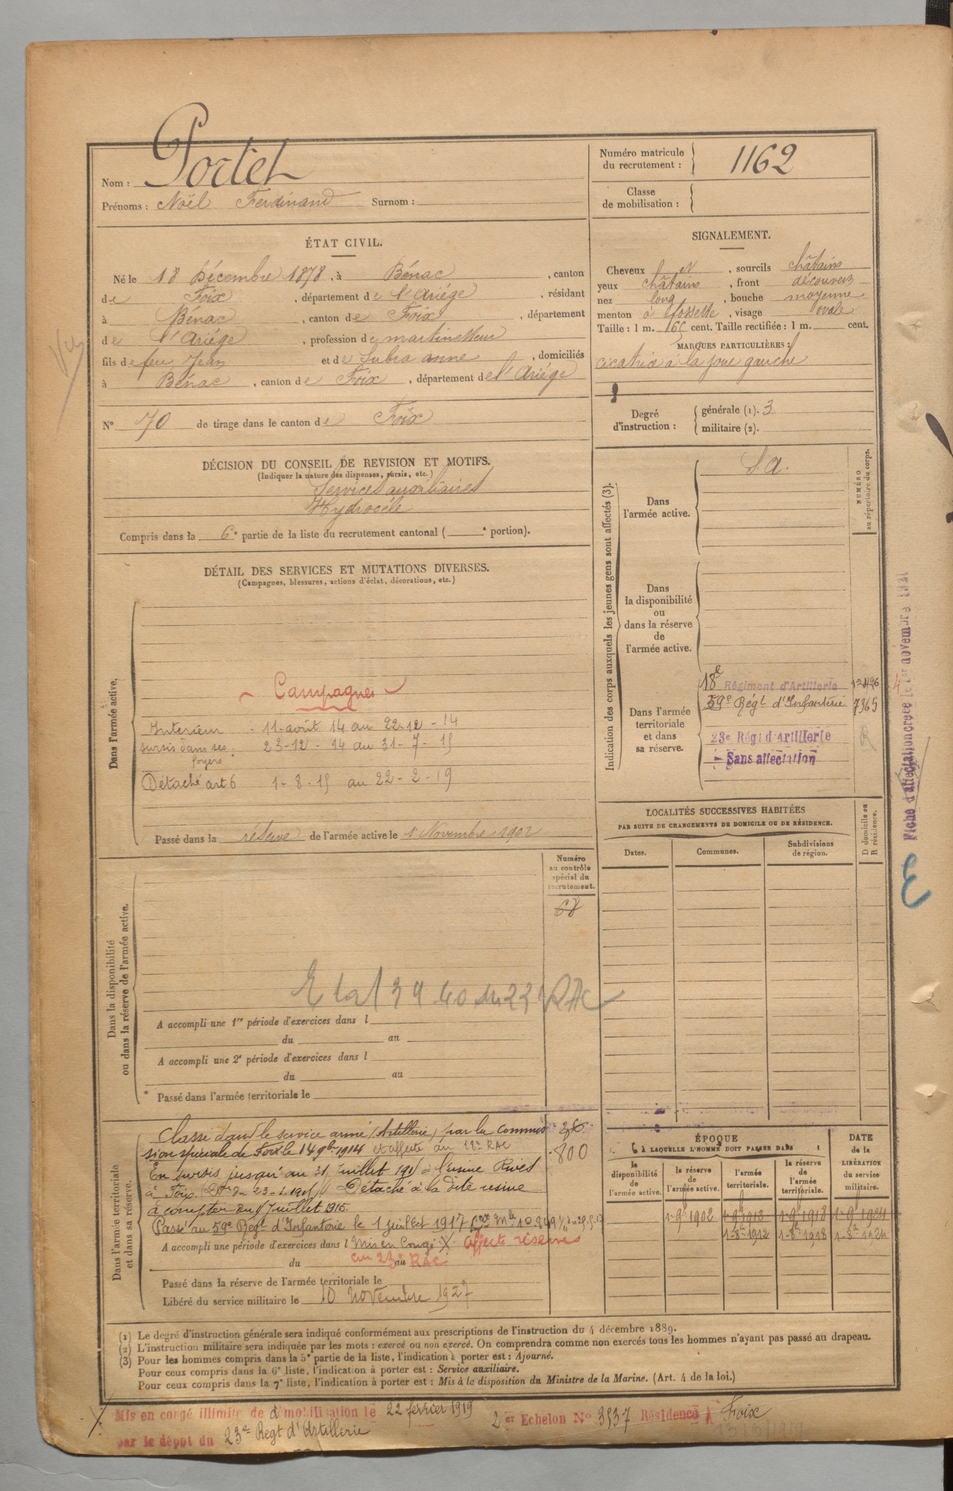 Nom : Portet
Prénoms : Noël Ferdinand Surnom :
Numéro matricule du recrutement : 1162
Classe de mobilisation :
ÉTAT CIVIL.
Né le 18 Décembre 1878, à Bénac, canton
de Foix, département de l'Ariége, résidant
à Bénac, canton de Foix, département
de l'Ariége, profession de martineteur
fils de feu Jean et de Subra anne, domiciliés
à Bénac, canton de Foix, département de l'Ariége
N° 70 de tirage dans le canton de Foix
SIGNALEMENT.
Cheveux, sourcils châtains
yeux châtains, front découvert
nez long, bouche moyenne
menton à fossette, visage ovale
Taille : 1 m. cent. Taille rectifiée : 1 m. cent.
MARQUES PARTICULIÈRES :
cicatrice à la joue gauche
Degré d'instruction : générale (1). 3
militaire (2).
DÉCISION DU CONSEIL DE REVISION ET MOTIFS.
(Indiquer la nature des dispenses, sursis, etc.)
Services auxiliaires
Hydrocèle
Compris dans la 6e partie de la liste du recrutement cantonal ( e portion).
DÉTAIL DES SERVICES ET MUTATIONS DIVERSES.
(Campagnes, blessures, actions d'éclat, décorations, etc.)
Dans l'armée active.
Campagnes
Intérieur - 11 août 14 au 22-12-14
sursis dans ses foyers : 23-12-14 au 31-7-15
Détaché art 6 1-8-15 au 22-2-19
Passé dans la réserve de l'armée active le 1 Novembre 1902
Indication des corps auxquels les jeunes gens sont affectés (3).
NUMÉRO au répertoire du corps.
Dans l'armée active.
S a.
Dans la disponibilité ou dans la réserve de l'armée active.
Dans l'armée territoriale et dans sa réserve.
18e Régiment d'Artillerie
59e Régt d'Infanterie 7365
23e Régt d'Artillerie
Sans affectation
Fiche d'affectation créée le 1er novembre 1921
3
LOCALITÉS SUCCESSIVES HABITÉES
PAR SUITE DE CHANGEMENTS DE DOMICILE OU DE RÉSIDENCE.
Dates. Communes. Subdivisions de région. D domicile ou R résidence.
Dans la disponibilité ou dans la réserve de l'armée active.
Numéro au contrôle spécial du recrutement.
A accompli une 1re période d'exercices dans l
du au
A accompli une 2e période d'exercices dans l
du au
* Passé dans l'armée territoriale le
Dans l'armée territoriale et dans sa réserve.
Classé dans le service armé (Artillerie) par la commis
sion spéciale de Foix le 14 9bre 1914 et affecté au RAC
800
En sursis jusqu'au 31 juillet 1915 à l'usine Rives
à Foix. Détaché à la dite usine
à compter du 1 Juillet 1915.
Passé au 59e Régt d'Infanterie le 1 Juillet 1917
A accompli une période d'exercices dans l Mis en Congé X Affecté réserves
du au 23e RAC
Passé dans la réserve de l'armée territoriale le
Libéré du service militaire le 10 novembre 1927
ÉPOQUE
À LAQUELLE L'HOMME DOIT PASSER DANS
la disponibilité de l'armée active. la réserve de l'armée active. l'armée territoriale. la réserve de l'armée territoriale.
DATE de la LIBÉRATION du service militaire.
1-9e 1902
(1) Le degré d'instruction générale sera indiqué conformément aux prescriptions de l'instruction du 4 décembre 1889.
(2) L'instruction militaire sera indiquée par les mots : exercé ou non exercé. On comprendra comme non exercés tous les hommes n'ayant pas passé au drapeau.
(3) Pour les hommes compris dans la 5e partie de la liste, l'indication à porter est : Ajourné.
Pour ceux compris dans la 6e liste, l'indication à porter est : Service auxiliaire.
Pour ceux compris dans la 7e liste, l'indication à porter est : Mis à la disposition du Ministre de la Marine. (Art. 4 de la loi.)
Mis en congé illimité de démobilisation le 22 février 1919 2er Echelon N° 3937 Résidence à Foix
par le dépôt du 23e Régt d'Artillerie